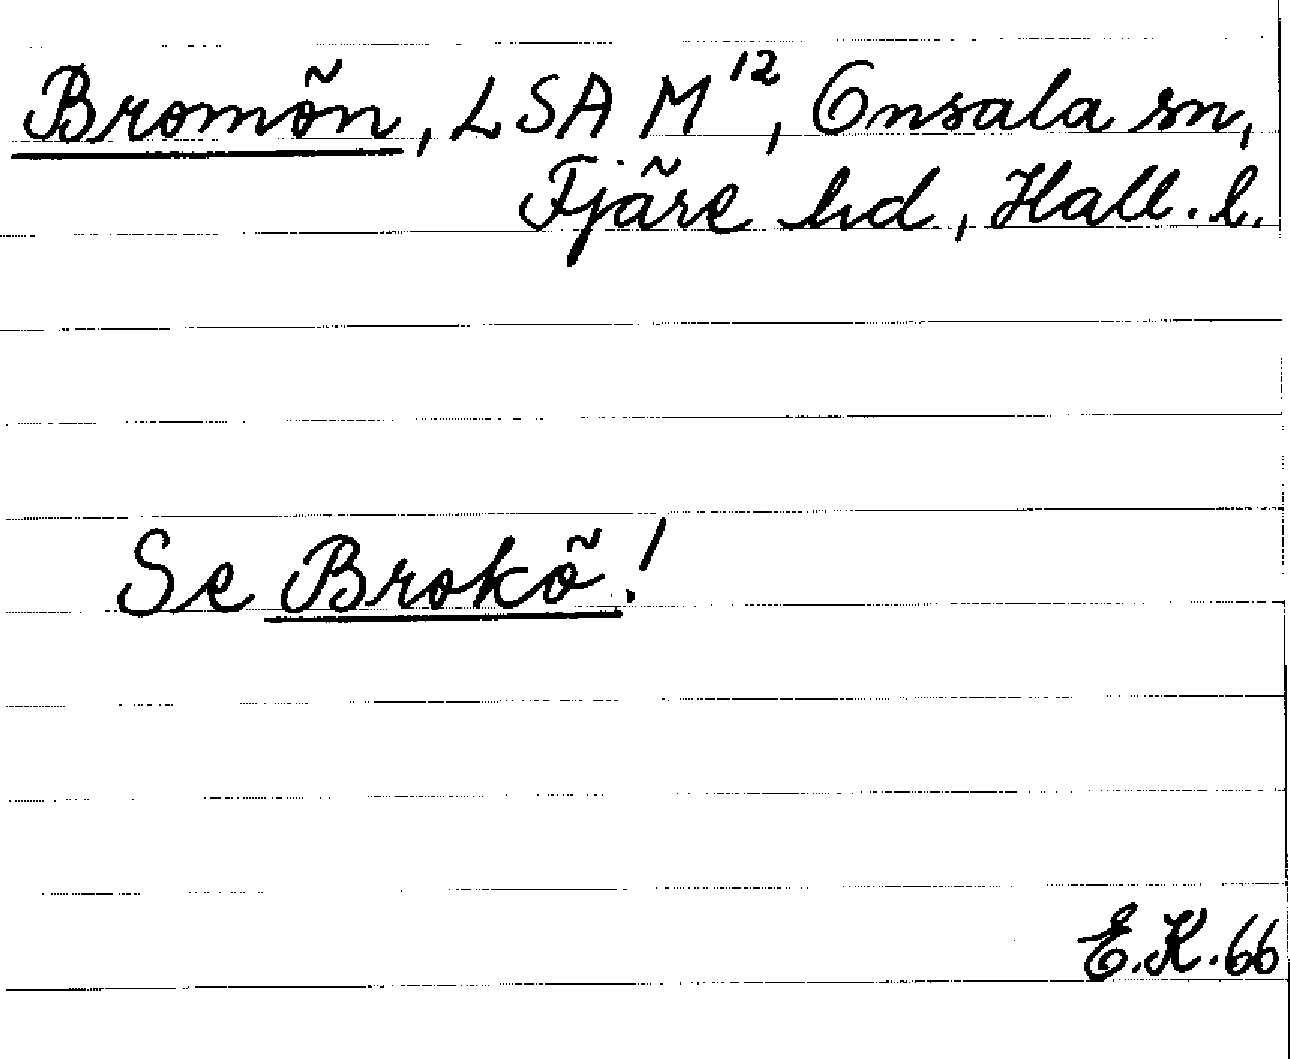 Bromön, LSA M¹², Onsala sn,
Fjäre hd, Hall. l.
Se Brokö!
E.K.66